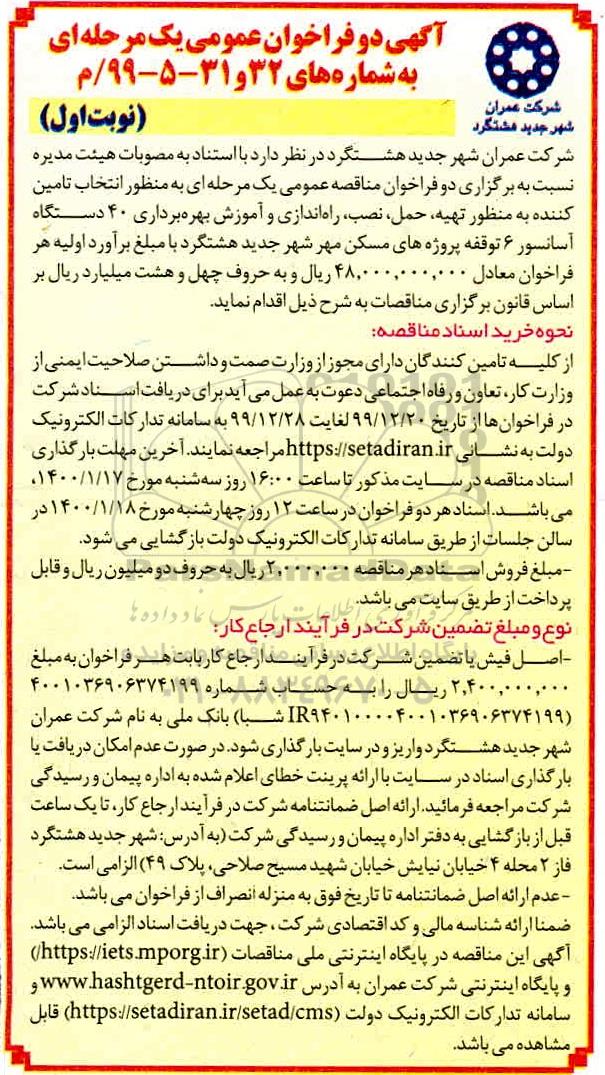 آگهی دو فراخوان عمومی یک مرحله ای
به شماره های ۳۲ و ۳۱-۵-۹۹/م
شرکت عمران
شهر جدید هشتگرد
(نوبت اول)
شرکت عمران شهر جدید هشتگرد در نظر دارد با استناد به مصوبات هیئت مدیره
نسبت به برگزاری دو فراخوان مناقصه عمومی یک مرحله ای به منظور انتخاب تامین
کننده به منظور تهیه، حمل، نصب، راه‌اندازی و آموزش بهره‌برداری ۴۰ دستگاه
آسانسور ۶ توقفه پروژه های مسکن مهر شهر جدید هشتگرد با مبلغ برآورد اولیه هر
فراخوان معادل ۴۸,۰۰۰,۰۰۰,۰۰۰ ریال و به حروف چهل و هشت میلیارد ریال بر
اساس قانون برگزاری مناقصات به شرح ذیل اقدام نماید.
نحوه خرید اسناد مناقصه:
از کلیه تامین کنندگان دارای مجوز از وزارت صمت و داشتن صلاحیت ایمنی از
وزارت کار، تعاون و رفاه اجتماعی دعوت به عمل می آید برای دریافت اسناد شرکت
در فراخوان ها از تاریخ ۹۹/۱۲/۲۰ لغایت ۹۹/۱۲/۲۸ به سامانه تدارکات الکترونیک
دولت به نشانی https://setadiran.ir مراجعه نمایند. آخرین مهلت بارگذاری
اسناد مناقصه در سایت مذکور تا ساعت ۱۶:۰۰ روز سه شنبه مورخ ۱۴۰۰/۱/۱۷،
می باشد. اسناد هر دو فراخوان در ساعت ۱۲ روز چهارشنبه مورخ ۱۴۰۰/۱/۱۸ در
سالن جلسات از طریق سامانه تدارکات الکترونیک دولت بازگشایی می شود.
-مبلغ فروش اسناد هر مناقصه ۲,۰۰۰,۰۰۰ ریال به حروف دو میلیون ریال و قابل
پرداخت از طریق سایت می باشد.
نوع و مبلغ تضمین شرکت در فرآیند ارجاع کار:
-اصل فیش یا تضمین شرکت در فرآیند ارجاع کار بابت هر فراخوان به مبلغ
۲,۴۰۰,۰۰۰,۰۰۰ ریال را به حساب شماره ۴۰۰۱۰۳۶۹۰۶۳۷۴۱۹۹
(IR۹۴۰۱۰۰۰۰۴۰۰۱۰۳۶۹۰۶۳۷۴۱۹۹ شبا) بانک ملی به نام شرکت عمران
شهر جدید هشتگرد واریز و در سایت بارگذاری شود. در صورت عدم امکان دریافت یا
بارگذاری اسناد در سایت با ارائه پرینت خطای اعلام شده به اداره پیمان و رسیدگی
شرکت مراجعه فرمائید. ارائه اصل ضمانتنامه شرکت در فرآیند ارجاع کار، تا یک ساعت
قبل از بازگشایی به دفتر اداره پیمان و رسیدگی شرکت (به آدرس: شهر جدید هشتگرد
فاز ۲ محله ۴ خیابان نیایش خیابان شهید مسیح صلاحی، پلاک ۴۹) الزامی است.
-عدم ارائه اصل ضمانتنامه تا تاریخ فوق به منزله انصراف از فراخوان می باشد.
ضمنا ارائه شناسه مالی و کد اقتصادی شرکت، جهت دریافت اسناد الزامی می باشد.
آگهی این مناقصه در پایگاه اینترنتی ملی مناقصات (https://iets.mporg.ir/)
و پایگاه اینترنتی شرکت عمران به آدرس www.hashtgerd-ntoir.gov.ir و
سامانه تدارکات الکترونیک دولت (https://setadiran.ir/setad/cms) قابل
مشاهده می باشد.